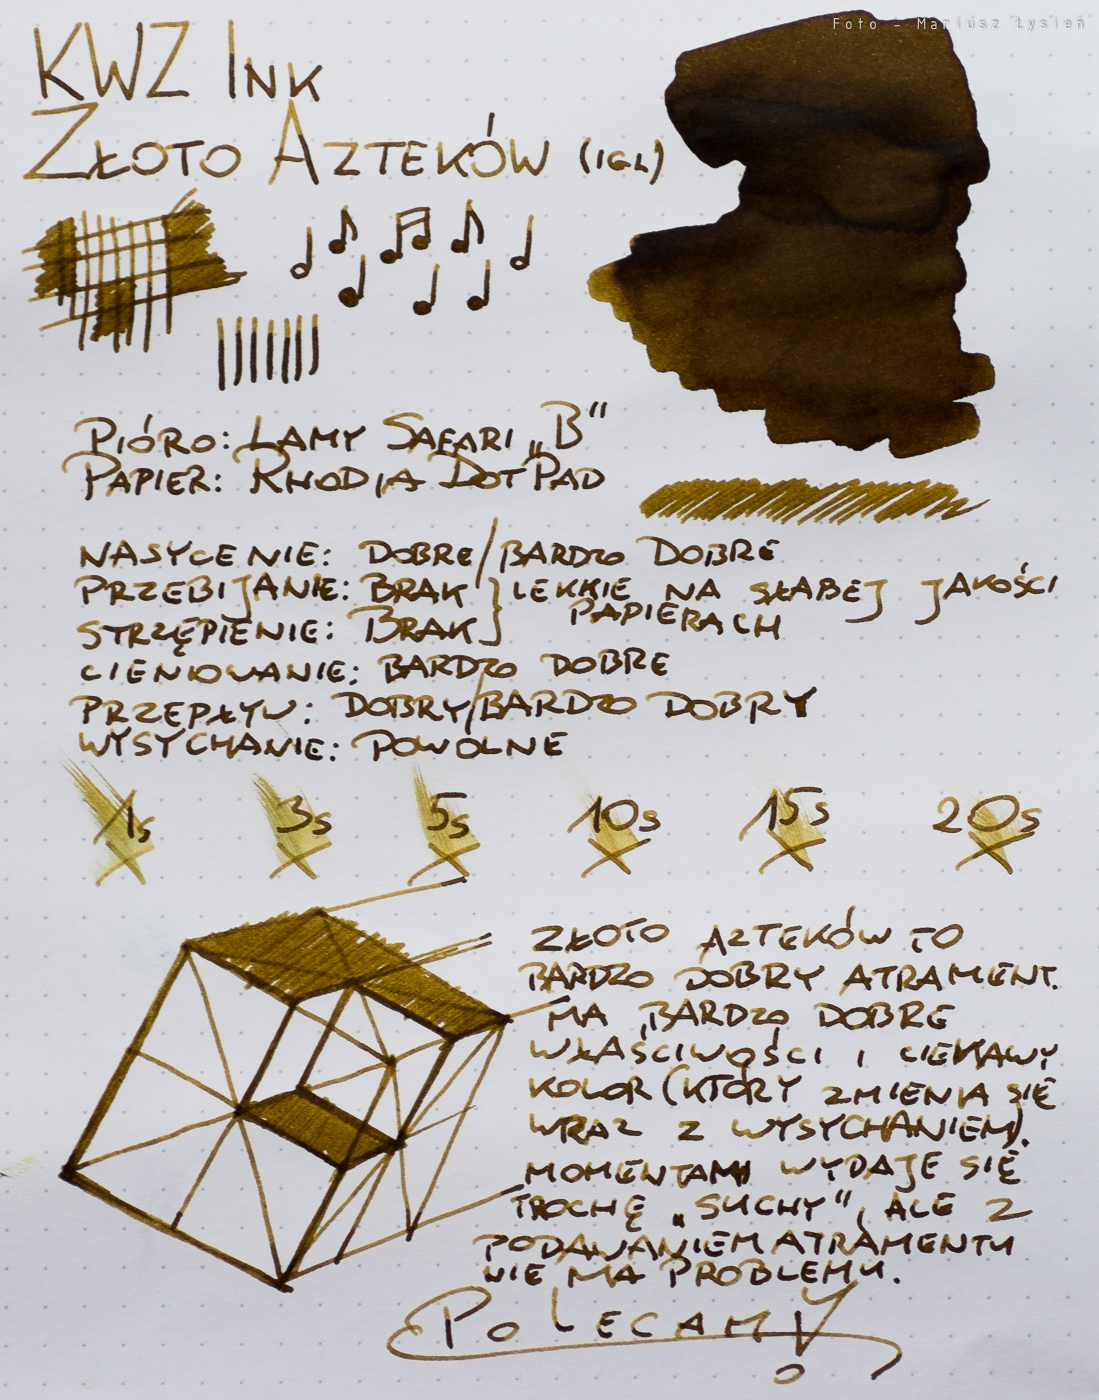 Foto - Mariusz Łysień
KWZ Ink
Złoto Azteków (IGL)
Pióro: Lamy Safari „B"
Papier: Rhodia DotPad
Nasycenie: Dobre/Bardzo Dobre
Przebijanie: Brak } Lekkie na słabej jakości
papierach
Strzępienie: Brak
Cieniowanie: Bardzo dobre
Przepływ: Dobry/Bardzo dobry
Wysychanie: Powolne
1s 3s 5s 10s 15s 20s
Złoto Azteków to
bardzo dobry atrament.
Ma bardzo dobre
właściwości i ciekawy
kolor (który zmienia się
wraz z wysychaniem).
Momentami wydaje się
trochę „suchy", ale z
podawaniem atramentu
nie ma problemu.
Polecamy